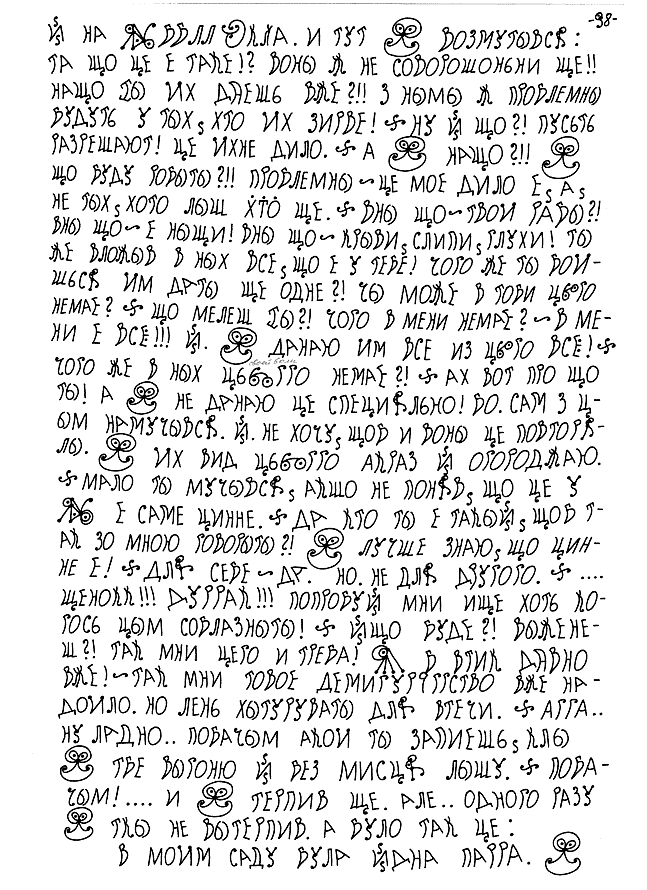 -98-
Й НА ОККА. И ТУТ ВОЗМУТЫВСЯ:
ТА ЩО ЦЕ Е ТАКЕ!? ВОНЫ Ж НЕ СОВОРОШОНЬНИ ЩЕ!!
НАЩО ТЫ ИХ ДАЕШЬ ВЖЕ?!! З НЫМЫ Ж ПРОБЛЕМНЫ
БУДУТЬ У ТЫХ, ХТО ИХ ЗИРВЕ! ~ НУ Й ЩО?! ПУСЬТЬ
РАЗРЕШАЮТ! ЦЕ ИХНЕ ДИЛО. ~ А НАЩО?!!
ЩО БУДУ РОБЫТЫ?!! ПРОБЛЕМНЫ ~ ЦЕ МОЕ ДИЛО Е, А,
НЕ ТЫХ, ХОТО ЛЫШ ХТО ЩЕ. ~ ВНЫ ЩО ~ ТВОИ РАБЫ?!
ВНЫ ЩО ~ Е НЫЩИ! ВНЫ ЩО ~ КРЫВИ, СЛИПИ, ГЛУХИ! ТЫ
ЖЕ ВЛОЖЫВ В НЫХ ВСЕ, ЩО Е У ТЕБЕ! ЧОГО ЖЕ ТЫ БОИ-
ШЬСЯ ИМ ДАТЫ ЩЕ ОДНЕ?! ЧЫ МОЖЕ В ТОБИ ЦЬОГО
НЕМАЕ? ~ ЩО МЕЛЕШ ТЫ?! ЧОГО В МЕНИ НЕМАЕ? ~ В МЕ-
НИ Е ВСЕ!!! Й. ДАНАЮ ИМ ВСЕ ИЗ ЦЬОГО ВСЕ! ~
ЧОГО ЖЕ В НЫХ НЕМАЕ?! ~ АХ ВОТ ПРО ЩО
ТЫ! А НЕ ДАНАЮ ЦЕ СПЕЦИЯЛЬНО! БО. САМ З Ц-
ЫМ НАМУЧЫВСЯ. Й. НЕ ХОЧУ, ЩОБ И ВОНЫ ЦЕ ПОВТОРЯ-
ЛЫ. ИХ ВИД АКРАЗ Й ОГОРОДЖАЮ.
~ МАЛО ТЫ МУЧЫВСЯ, АКЩО НЕ ПОНЯВ, ЩО ЦЕ У
Е САМЕ ЦИННЕ. ~ ДА КТО ТЫ Е ТАКЫЙ, ЩОБ Т-
АК ЗО МНОЮ ГОВОРЫТЫ?! ЛУЧШЕ ЗНАЮ, ЩО ЦИН-
НЕ Е! ~ ДЛЯ СЕБЕ ~ ДА. НО. НЕ ДЛЯ ДРУГОГО. ~ ....
ЩЕНОКК!!! ДУРРАК!!! ПОПРОБУЙ МНИ ИЩЕ ХОТЬ КО-
ГОСЬ ЦЫМ СОБЛАЗНЫТЫ! ~ ЙЩО БУДЕ?! ВЫЖЕНЕ-
Ш?! ТАК МНИ ЦЕГО И ТРЕБА! В ВТИК ДАВНО
ВЖЕ! ~ ТАК МНИ ТОВОЕ ДЕМИГУРГГСТВО ВЖЕ НА-
ДОИЛО. НО ЛЕНЬ ХЫТУРУВАТЫ ДЛЯ ВТЕЧИ. ~ АГГА..
НУ ЛАДНО.. ПОБАЧЫМ АКОИ ТЫ ЗАПИЕШЬ, КЛЫ
ТБЕ ВЫГОНЮ Й БЕЗ МИСЦЯ ЛЫШУ. ~ ПОБА-
ЧЫМ!.... И ТЕРПИВ ЩЕ. АЛЕ.. ОДНОГО РАЗУ
ТКЫ НЕ ВЫТЕРПИВ. А БУЛО ТАК ЦЕ:
В МОИМ САДУ БУЛА ЙДНА ПАРРА.